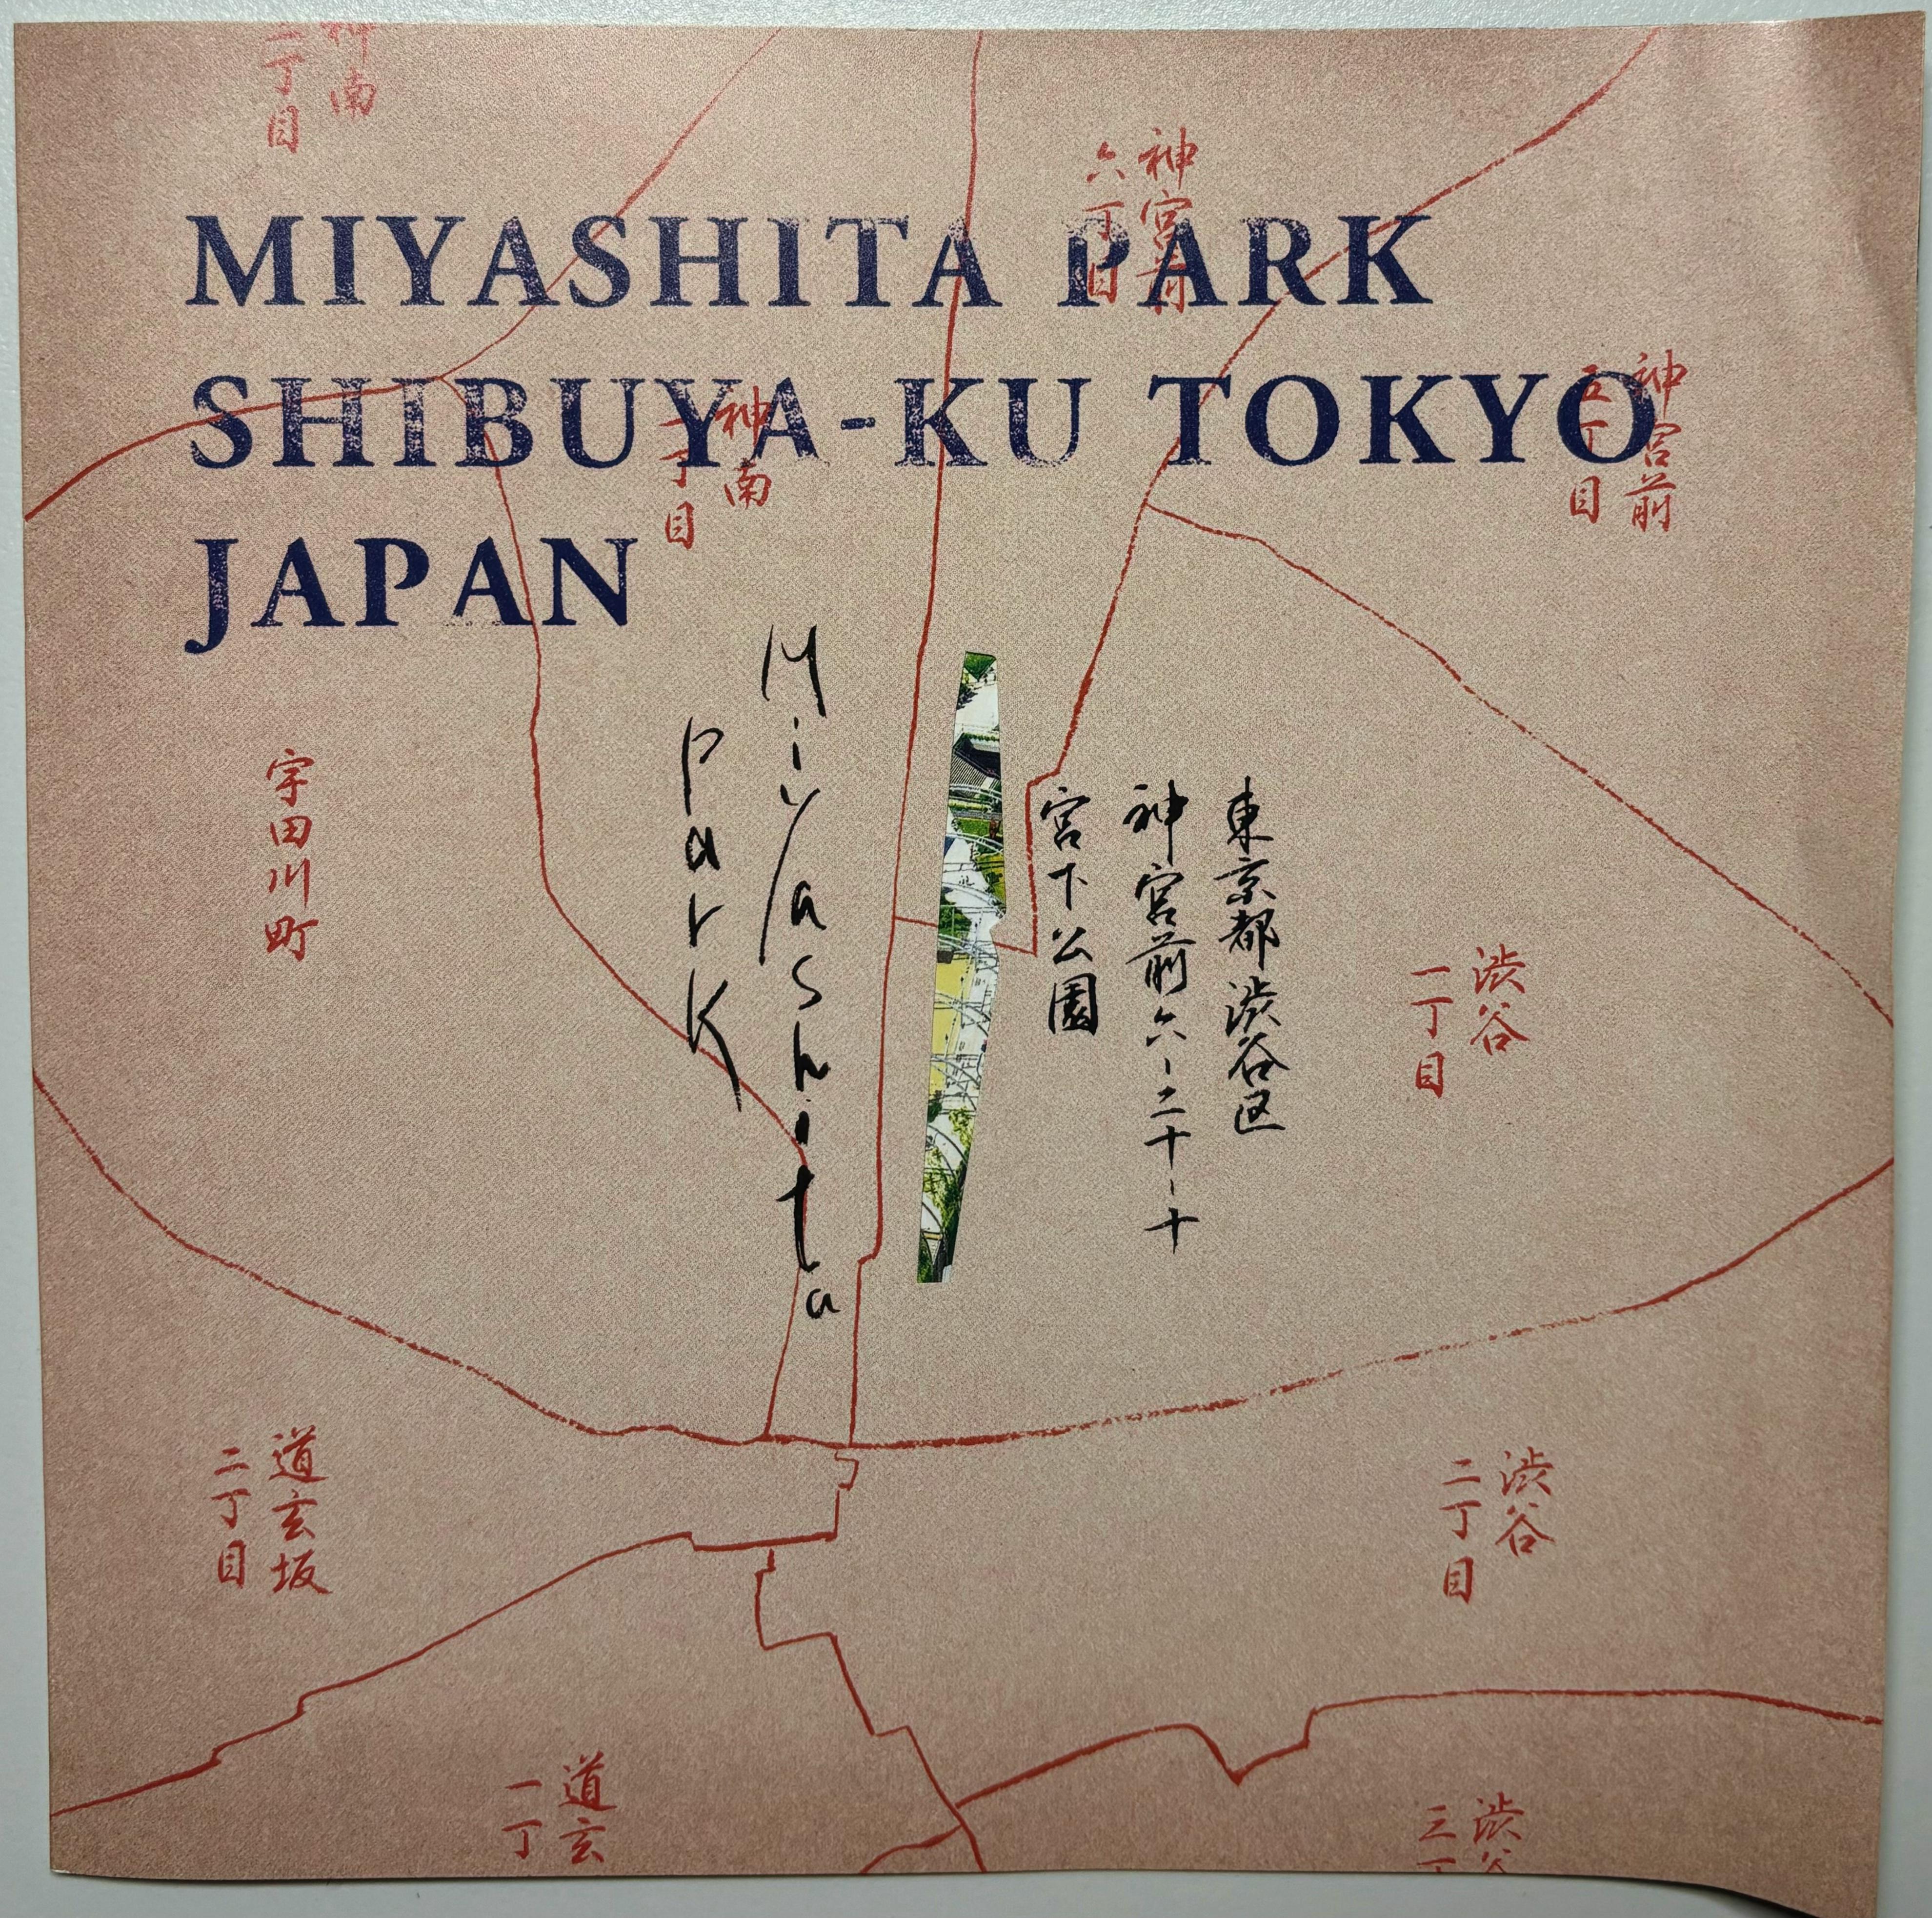 MIYASHITA PARK
SHIBUYA-KU TOKYO
JAPAN
神南
二丁目
神宮前
六丁目
神宮前
五丁目
神南
一丁目
宇田川町
Miyashita
Park
東京都渋谷区
神宮前六-二十-十
宮下公園
渋谷
一丁目
道玄坂
二丁目
渋谷
二丁目
道玄
一丁
渋谷
三丁